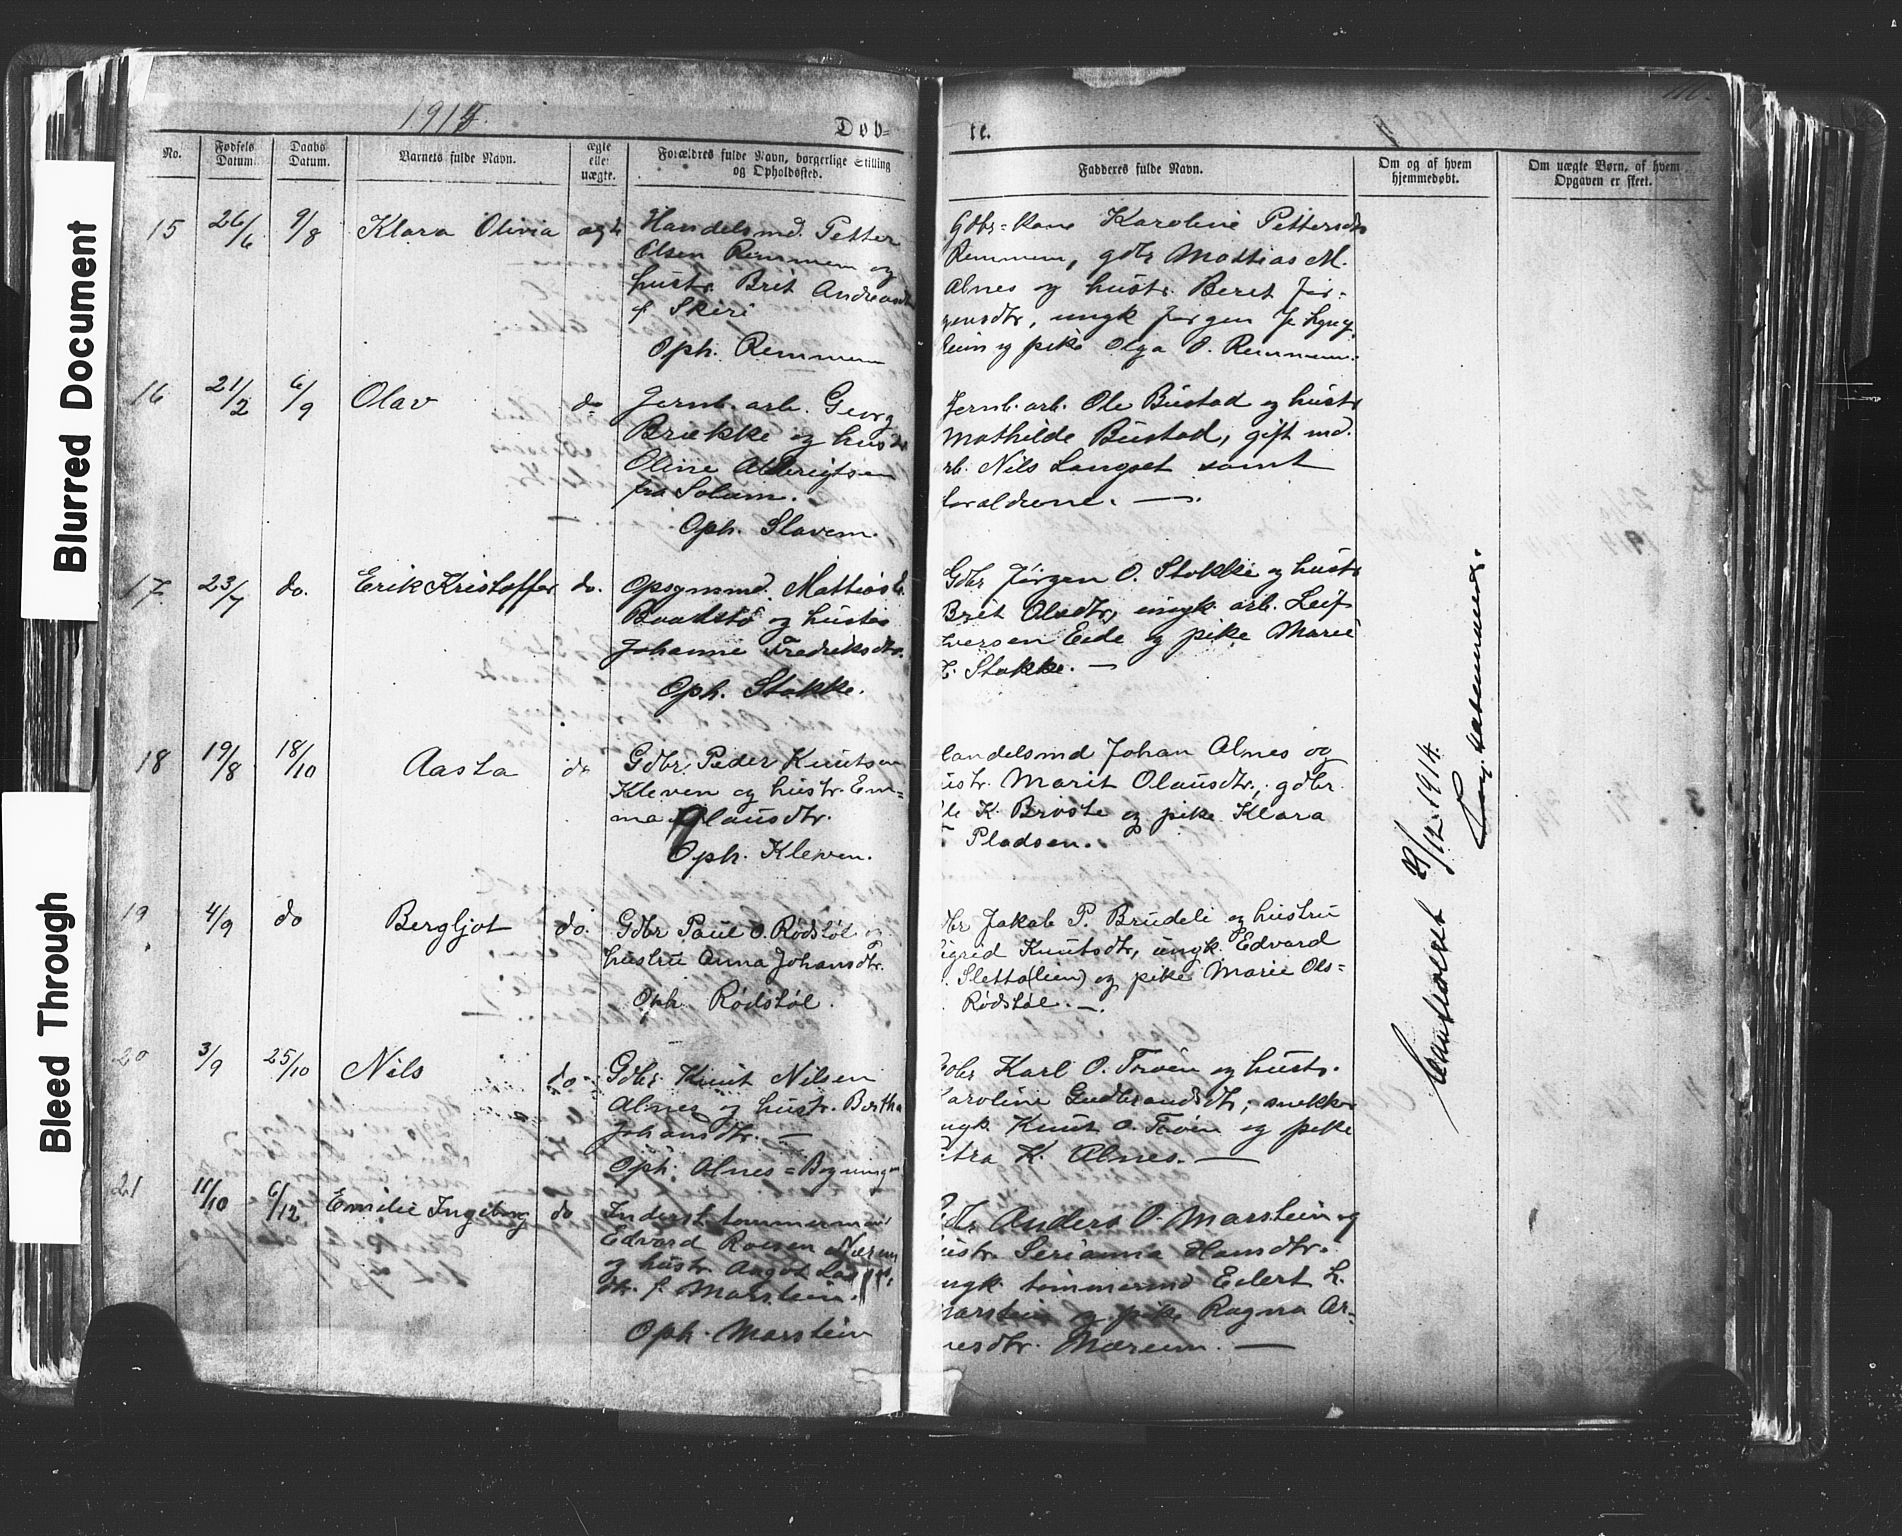 Blurred Document
Bleed Through
1914.
Dob=
te.
No.
Fødsels Datum.
Daabs Datum.
Barnets fulde Navn.
ægte eller uægte.
Forældres fulde Navn, borgerlige Stilling og Opholdssted.
Fadderes fulde Navn.
Om og af hvem hjemmedøbt.
Om uægte Børn, af hvem Opgaven er skeet.
15 26/6 9/8 Klara Olivia ægte
Handelsmd. Petter
Olsen Remmem og
hustr. Brit Andreasdt
f. Skiri
Oph. Remmem
Gdbr=kone Karoline Pettersdtr
Remmem, gdbr Mattias M.
Alnes og hustr. Beret Jør=
gensdtr, ungk Jørgen J.
og pike Olga O. Remmem.
16 21/2 6/9 Olav do
Jernb. arb. Georg
Brække og hustr
Oline Albrigtsen
fra Solum.
Oph. Slavem.
Jernb. arb. Ole Bustad og hustr
Mathilde Bustad, gift md.
arb. Nils Langset samt
foraldrene. —
17 23/7 do. Erik Kristoffer do.
Opsynsmd. Mattias
Baadstø og hustru
Johanne Fredriksdtr.
Oph. Stokke.
Gdbr Jørgen O. Stokke og hustr
Brit Olsdtr, ungk. arb. Leif
Iversen Eide og pike Marie
Stokke. —
18 19/8 18/10 Aasta do
Gdbr. Peder Knutsen
Kleven og hustr. Em=
ma Olausdtr.
Oph. Kleven.
Handelsmd Johan Alnes og
hustr. Marit Olausdtr., gdbr.
Ole K. Brøste og pike Klara
Pladsen.
19 4/9 do Bergljot do.
Gdbr Paul O. Rødstøl og
hustru Anna Johansdtr.
Oph. Rødstøl.
Gdbr Jakob P. Brudeli og hustru
Sigrid Knutsdtr, ungk. Edvard
Sletta(lien) og pike Marie Ols=
Rødstøl. —.
20 3/9 25/10 Nils do
Gdbr Knut Nilsen
Alnes og hustr. Bertha
Johansdtr. —
Oph. Alnes=Bygningen
Gdbr Karl O. Trøen og hustr.
Karoline Gudbrandsdtr, snekker
ungk Knut O. Trøen og pike
Petra K. Alnes. —
21 11/10 6/12 Emilie Ingeborg do
Inderst tømmermand
Edvard Roesen Mærem
og hustr. Angot
dtr. f. Marstein.
Oph. Marstein
Gdbr Anders O. Marstein og
hustr. Serianna Hansdtr.
ungk. tømmermd Edert L.
Marstein og pike Ragna Ar=
nesdtr. Mærem. —
Konfereret 29/12. 1914.